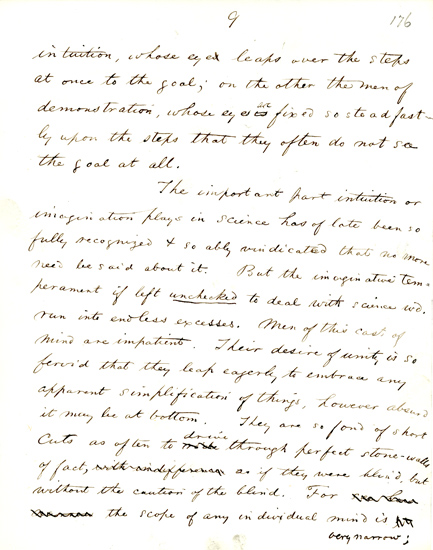 9 176
intuition, whose eye leaps over the steps
at once to the goal; on the other the men of
demonstration, whose eyes are fixed so steadfast-
ly upon the steps that they often do not see
the goal at all.
The important part intuition or
imagination plays in science has of late been so
fully recognized & so ably vindicated that no more
need be said about it. But the imaginative tem-
perament if left unchecked to deal with science wd.
run into endless excesses. Men of this cast of
mind are impatient. Their desire of unity is so
fervid that they leap eagerly to embrace any
apparent simplification of things, however absurd
it may be at bottom. They are so fond of short
cuts as often to drive through perfect stone-walls
of fact, with indifference as if they were blind, but
without the caution of the blind. For
the scope of any individual mind is
very narrow;